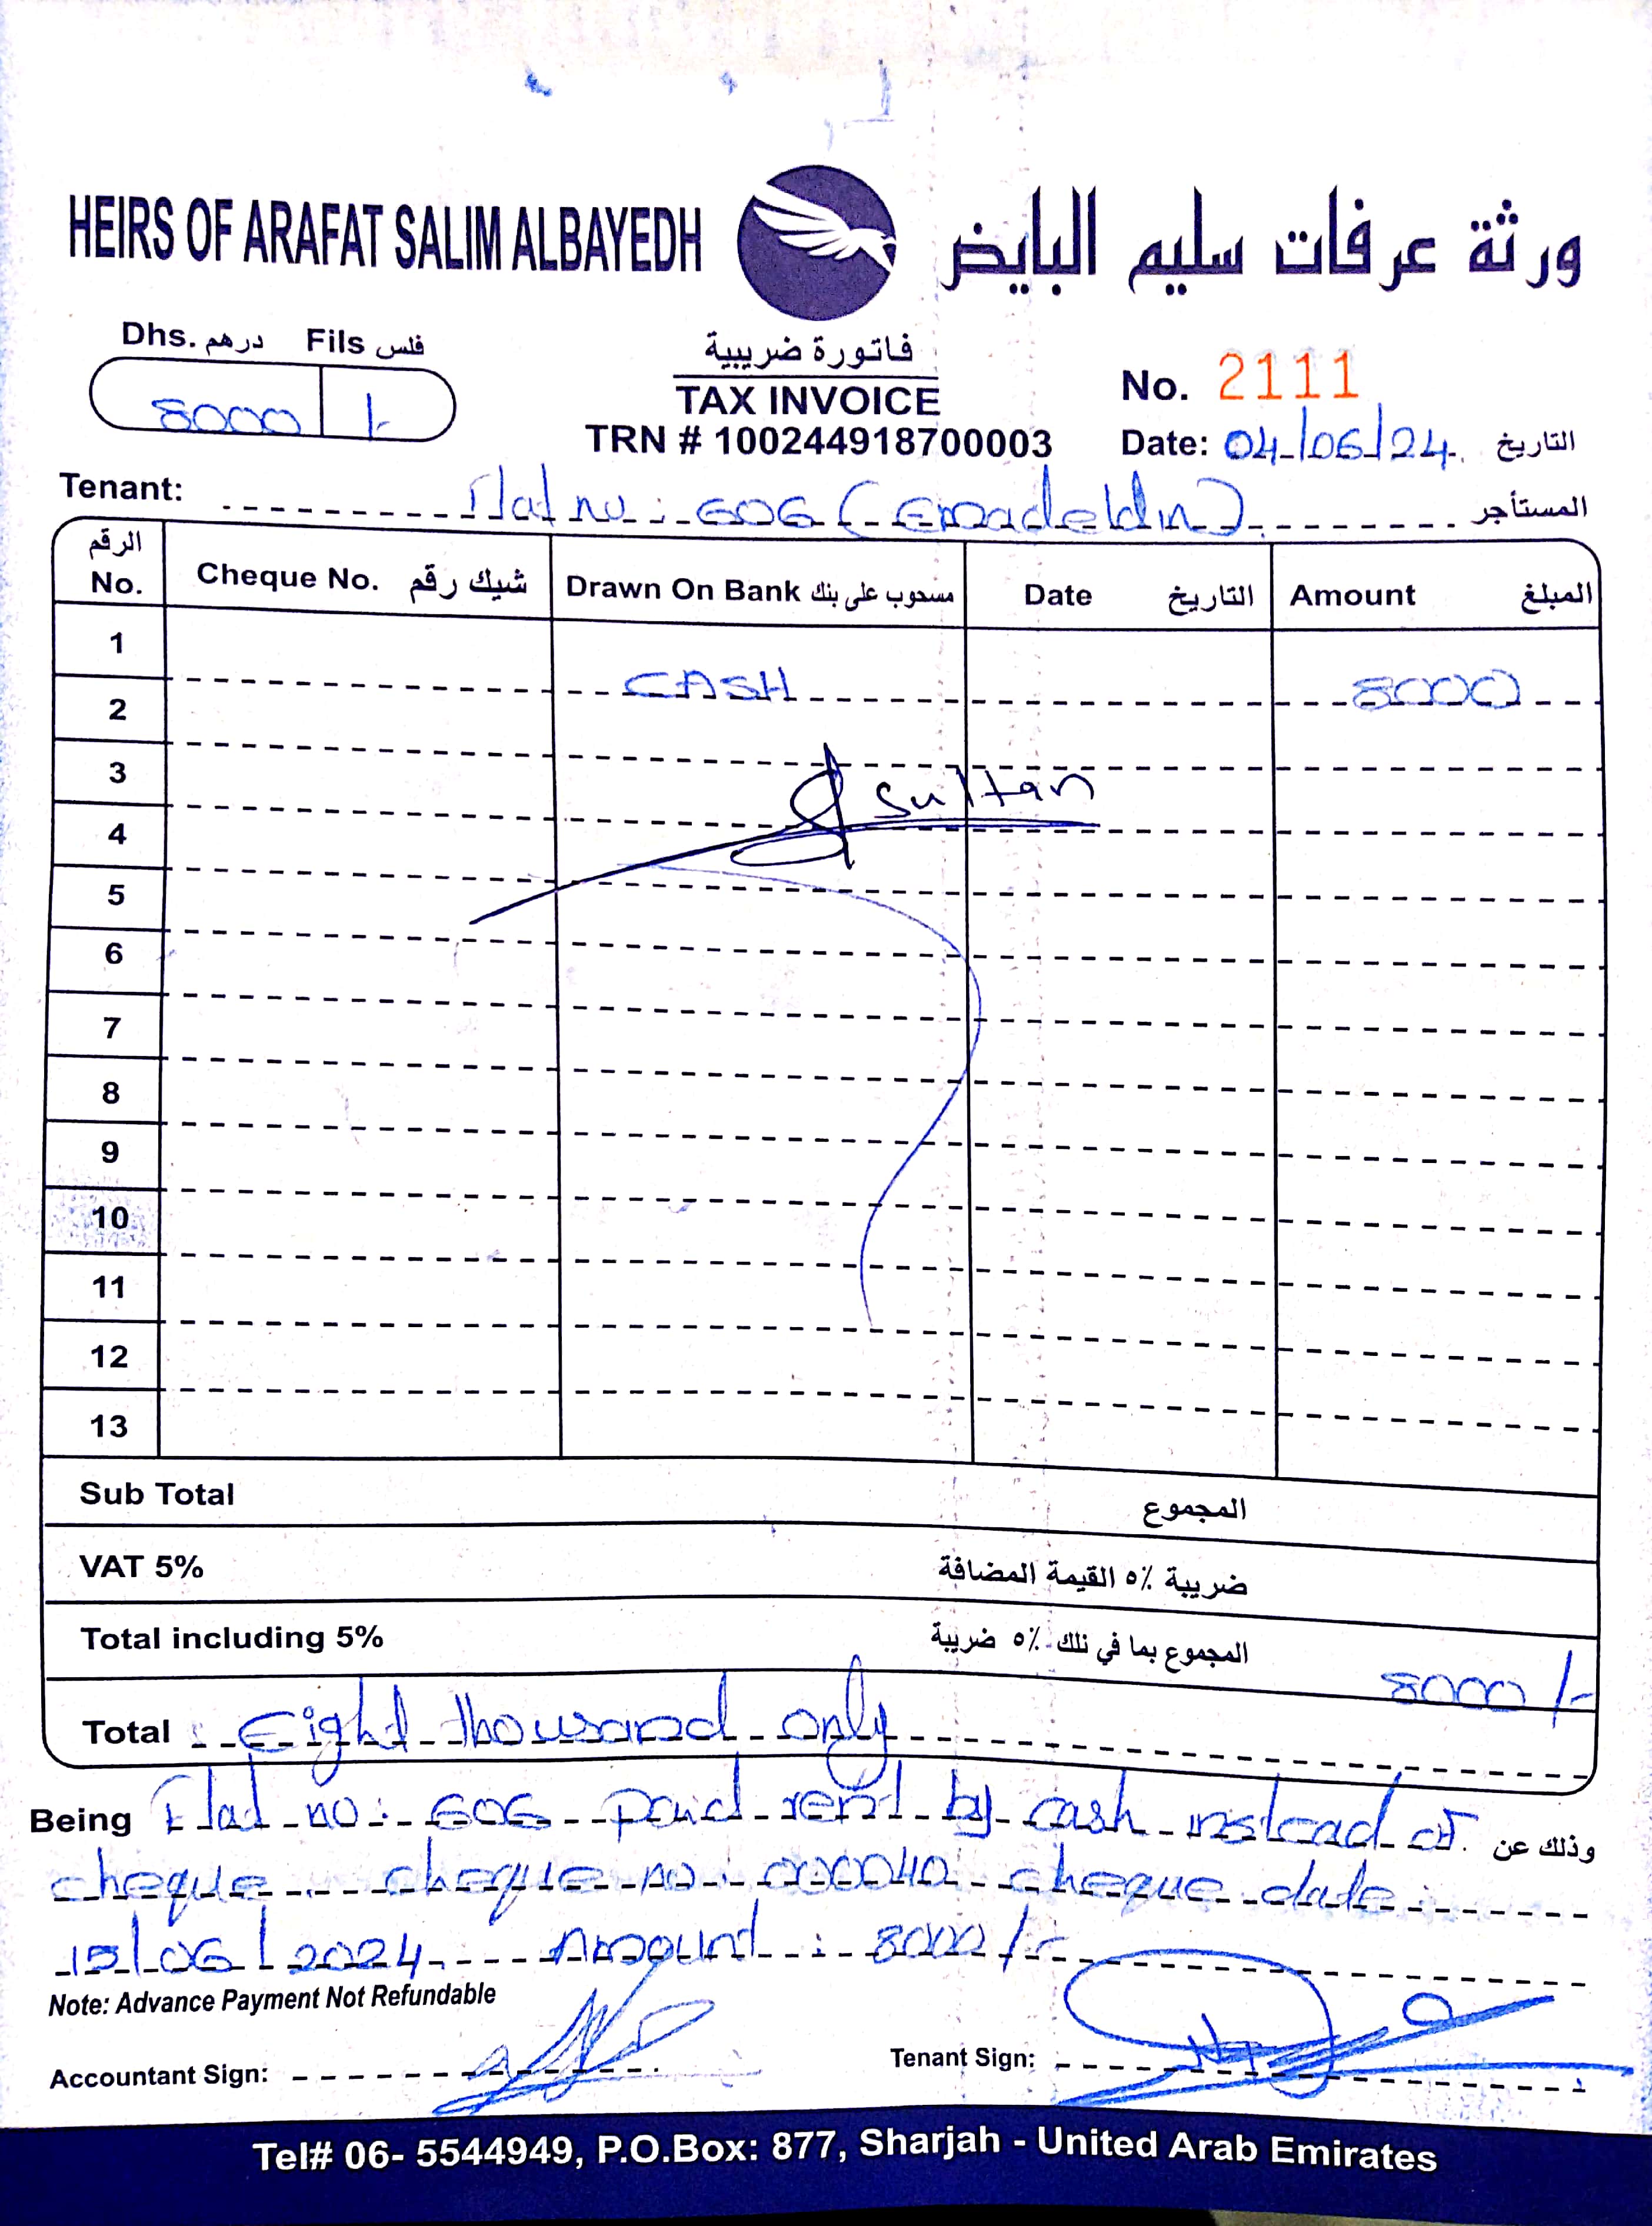 HEIRS OF ARAFAT SALIM ALBAYEDH ورثة عرفات سليم البايض
Dhs. درهم Fils فلس
8000 /-
فاتورة ضريبية
TAX INVOICE
TRN # 100244918700003
No. 2111
Date: 04/06/24 التاريخ
Tenant: Flat no: 606 (Emadeldin) المستأجر
الرقم No. Cheque No. شيك رقم Drawn On Bank مسحوب على بنك Date التاريخ Amount المبلغ
1
CASH 8000
2
3
sultan
4
5
6
7
8
9
10
11
12
13
Sub Total المجموع
VAT 5% ضريبة ٥٪ القيمة المضافة
Total including 5% المجموع بما في ذلك ٥٪ ضريبة
8000/-
Total : Eight thousand only
Being Flat no: 606 paid rent by cash instead of وذلك عن
cheque cheque no: 000040 cheque date:
15/06/2024 Amount : 8000/-
Note: Advance Payment Not Refundable
Accountant Sign: Tenant Sign:
Tel# 06- 5544949, P.O.Box: 877, Sharjah - United Arab Emirates